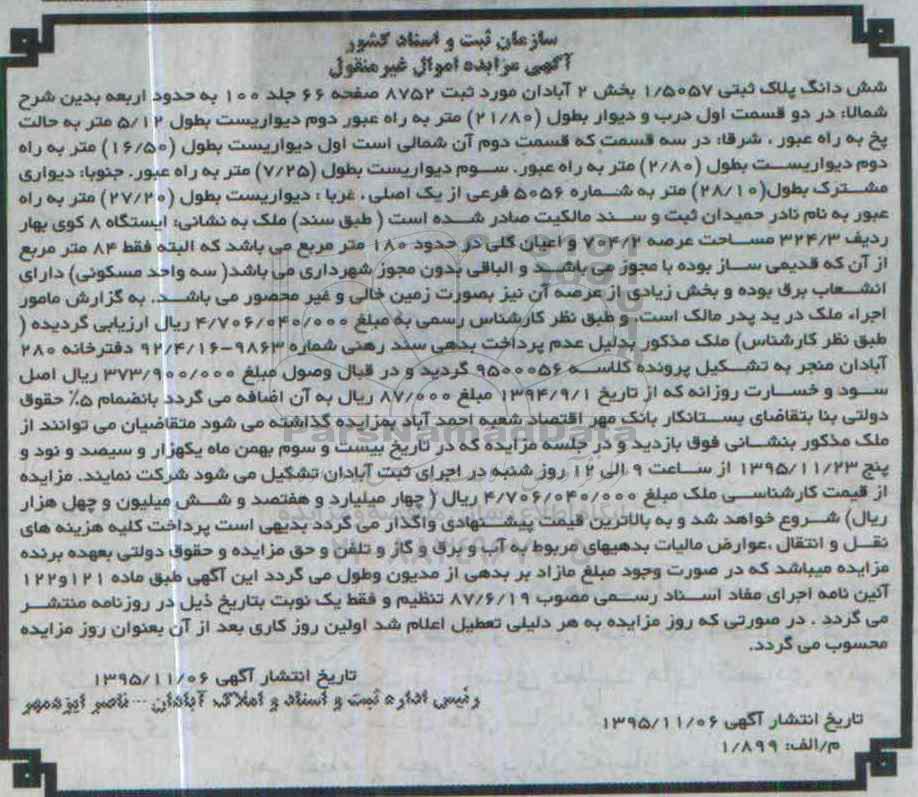 سازمان ثبت و اسناد کشور
آگهی مزایده اموال غیر منقول
شش دانگ پلاک ثبتی ۱/۵۰۵۷ بخش ۲ آبادان مورد ثبت ۸۷۵۲ صفحه ۶۶ جلد ۱۰۰ به حدود اربعه بدین شرح
شمالا: در دو قسمت اول درب و دیوار بطول (۲۱/۸۰) متر به راه عبور دوم دیواریست بطول ۵/۱۲ متر به حالت
پخ به راه عبور ، شرقا: در سه قسمت که قسمت دوم آن شمالی است اول دیواریست بطول (۱۶/۵۰) متر به راه
دوم دیواریست بطول (۲/۸۰) متر به راه عبور. سوم دیواریست بطول (۷/۲۵) متر به راه عبور. جنوبا: دیواری
مشترک بطول(۲۸/۱۰) متر به شماره ۵۰۵۶ فرعی از یک اصلی ، غربا : دیواریست بطول (۲۷/۲۰) متر به راه
عبور به نام نادر حمیدان ثبت و سند مالکیت صادر شده است ( طبق سند) ملک به نشانی: ایستگاه ۸ کوی بهار
ردیف ۳۲۴/۳ مساحت عرصه ۷۰۴/۲ و اعیان کلی در حدود ۱۸۰ متر مربع می باشد که البته فقط ۸۴ متر مربع
از آن که قدیمی ساز بوده با مجوز می باشد و الباقی بدون مجوز شهرداری می باشد( سه واحد مسکونی) دارای
انشعاب برق بوده و بخش زیادی از عرصه آن نیز بصورت زمین خالی و غیر محصور می باشد. به گزارش مامور
اجراء ملک در ید پدر مالک است. و طبق نظر کارشناس رسمی به مبلغ ۴/۷۰۶/۰۴۰/۰۰۰ ریال ارزیابی گردیده (
طبق نظر کارشناس) ملک مذکور بدلیل عدم پرداخت بدهی سند رهنی شماره ۹۸۶۳-۹۲/۴/۱۶ دفترخانه ۲۸۰
آبادان منجر به تشکیل پرونده کلاسه ۹۵۰۰۰۵۶ گردید و در قبال وصول مبلغ ۳۷۳/۹۰۰/۰۰۰ ریال اصل
سود و خسارت روزانه که از تاریخ ۱۳۹۴/۹/۱ مبلغ ۸۷/۰۰۰ ریال به آن اضافه می گردد بانضمام ۵٪ حقوق
دولتی بنا بتقاضای بستانکار بانک مهر اقتصاد شعبه احمد آباد بمزایده گذاشته می شود متقاضیان می توانند از
ملک مذکور بنشانی فوق بازدید و در جلسه مزایده که در تاریخ بیست و سوم بهمن ماه یکهزار و سیصد و نود و
پنج ۱۳۹۵/۱۱/۲۳ از ساعت ۹ الی ۱۲ روز شنبه در اجرای ثبت آبادان تشکیل می شود شرکت نمایند. مزایده
از قیمت کارشناسی ملک مبلغ ۴/۷۰۶/۰۴۰/۰۰۰ ریال ( چهار میلیارد و هفتصد و شش میلیون و چهل هزار
ریال) شروع خواهد شد و به بالاترین قیمت پیشنهادی واگذار می گردد بدیهی است پرداخت کلیه هزینه های
نقل و انتقال ،عوارض مالیات بدهیهای مربوط به آب و برق و گاز و تلفن و حق مزایده و حقوق دولتی بعهده برنده
مزایده میباشد که در صورت وجود مبلغ مازاد بر بدهی از مدیون وطول می گردد این آگهی طبق ماده ۱۲۱و۱۲۲
آئین نامه اجرای مفاد اسناد رسمی مصوب ۸۷/۶/۱۹ تنظیم و فقط یک نوبت بتاریخ ذیل در روزنامه منتشر
می گردد . در صورتی که روز مزایده به هر دلیلی تعطیل اعلام شد اولین روز کاری بعد از آن بعنوان روز مزایده
محسوب می گردد.
تاریخ انتشار آگهی ۱۳۹۵/۱۱/۰۶
رئیس اداره ثبت و اسناد و املاک آبادان - ناصر ایزدمهر
تاریخ انتشار آگهی ۱۳۹۵/۱۱/۰۶
م/الف: ۱/۸۹۹
ParsNamadData